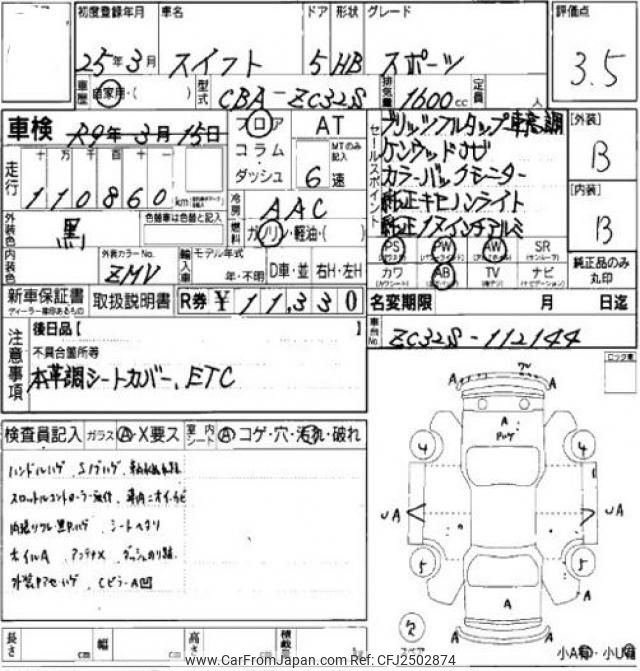 初度登録年月 車名 ドア 形状 グレード 評価点
25年3月 スイフト 5 HB スポーツ 3.5
車歴 自家用・( ) 型式 CBA-ZC32S 排気量 1600cc 定員 人
車検 R9年3月15日 フロア AT
コラム MTのみ記入
ダッシュ 6速
セールスポイント
ブリッツフルタップ車高調
ケンウッドナビ
カラーバックモニター
純正キセノンライト
純正17インチアルミ
[外装] B
[内装] B
走行 十 万 千 百 十 一
110860km
冷房 AAC
燃料 ガソリン・軽油・( )
外装色 黒 色替車は色替と記入
内装色 外装カラーNo. ZMV
輸入車 モデル年式 年・不明 D車・並 右H・左H
PS PW AW SR (サンルーフ)
カワ AB TV ナビ
純正品のみ丸印
新車保証書 取扱説明書 R券 ¥11,330
ディーラー捺印あるもの
名変期限 月 日迄
車台No. ZC32S-112144
注意事項 後日品【
不具合箇所等
本革調シートカバー、ETC
ロック車
検査員記入 ガラス A・X要ス 室内シート A コゲ・穴・汚れ・破れ
ハンドルハゲ
スロットルコントローラー
シートヘタリ
ホイルA アンテナX
CピラーA凹
A
A
4 4
UA UA
5 5
A A
スペア
長さ cm 幅 cm 高さ cm 積載量 kg
小A有・小U有
www.CarFromJapan.com Ref:CFJ2502874